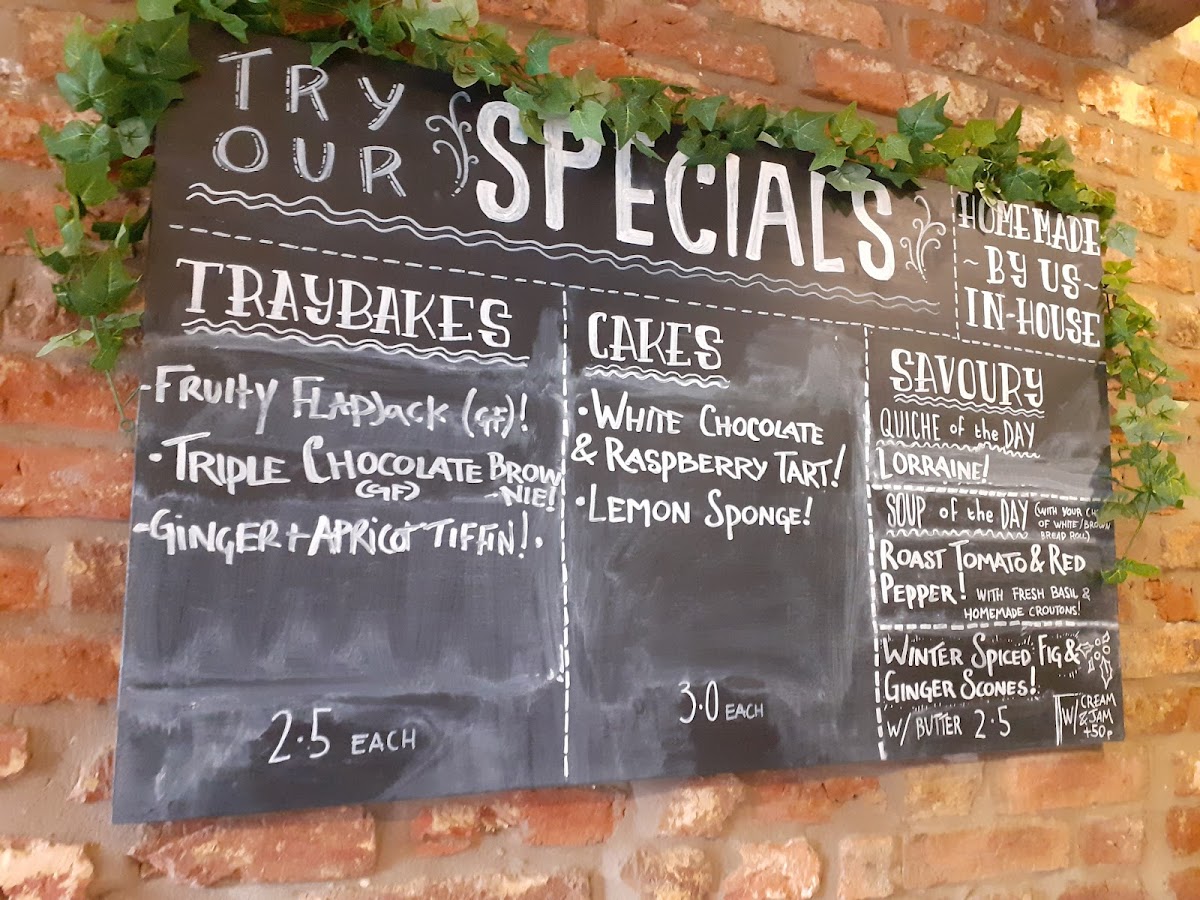 TRY
OUR
SPECIALS
HOMEMADE
~ BY US ~
IN-HOUSE
TRAYBAKES
-FRUITY FLAPJACK (GF)!
·TRIPLE CHOCOLATE BROW
-NIE!
(GF)
-GINGER + APRICOT TIFFIN!.
2·5 EACH
CAKES
·WHITE CHOCOLATE
& RASPBERRY TART!
·LEMON SPONGE!
3·0 EACH
SAVOURY
QUICHE of the DAY
LORRAINE!
SOUP of the DAY
(WITH YOUR
OF WHITE/BROWN
BREAD ROLL)
ROAST TOMATO & RED
PEPPER! WITH FRESH BASIL &
HOMEMADE CROUTONS!
WINTER SPICED FIG &
GINGER SCONES!
W/ BUTTER 2·5
W/ CREAM
& JAM
+50p